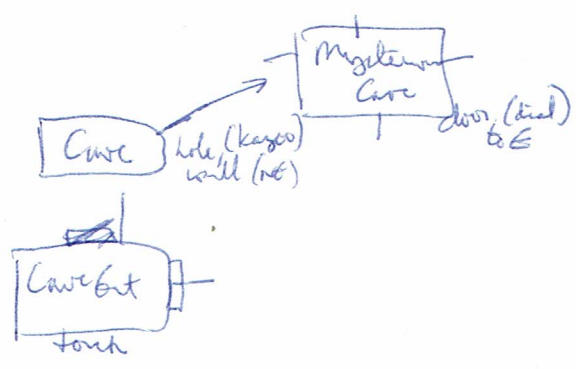 Mysterious
Cave
door, (dial)
to E
Cave
hole, (kazoo)
wall (NE)
Cave Ent
torch